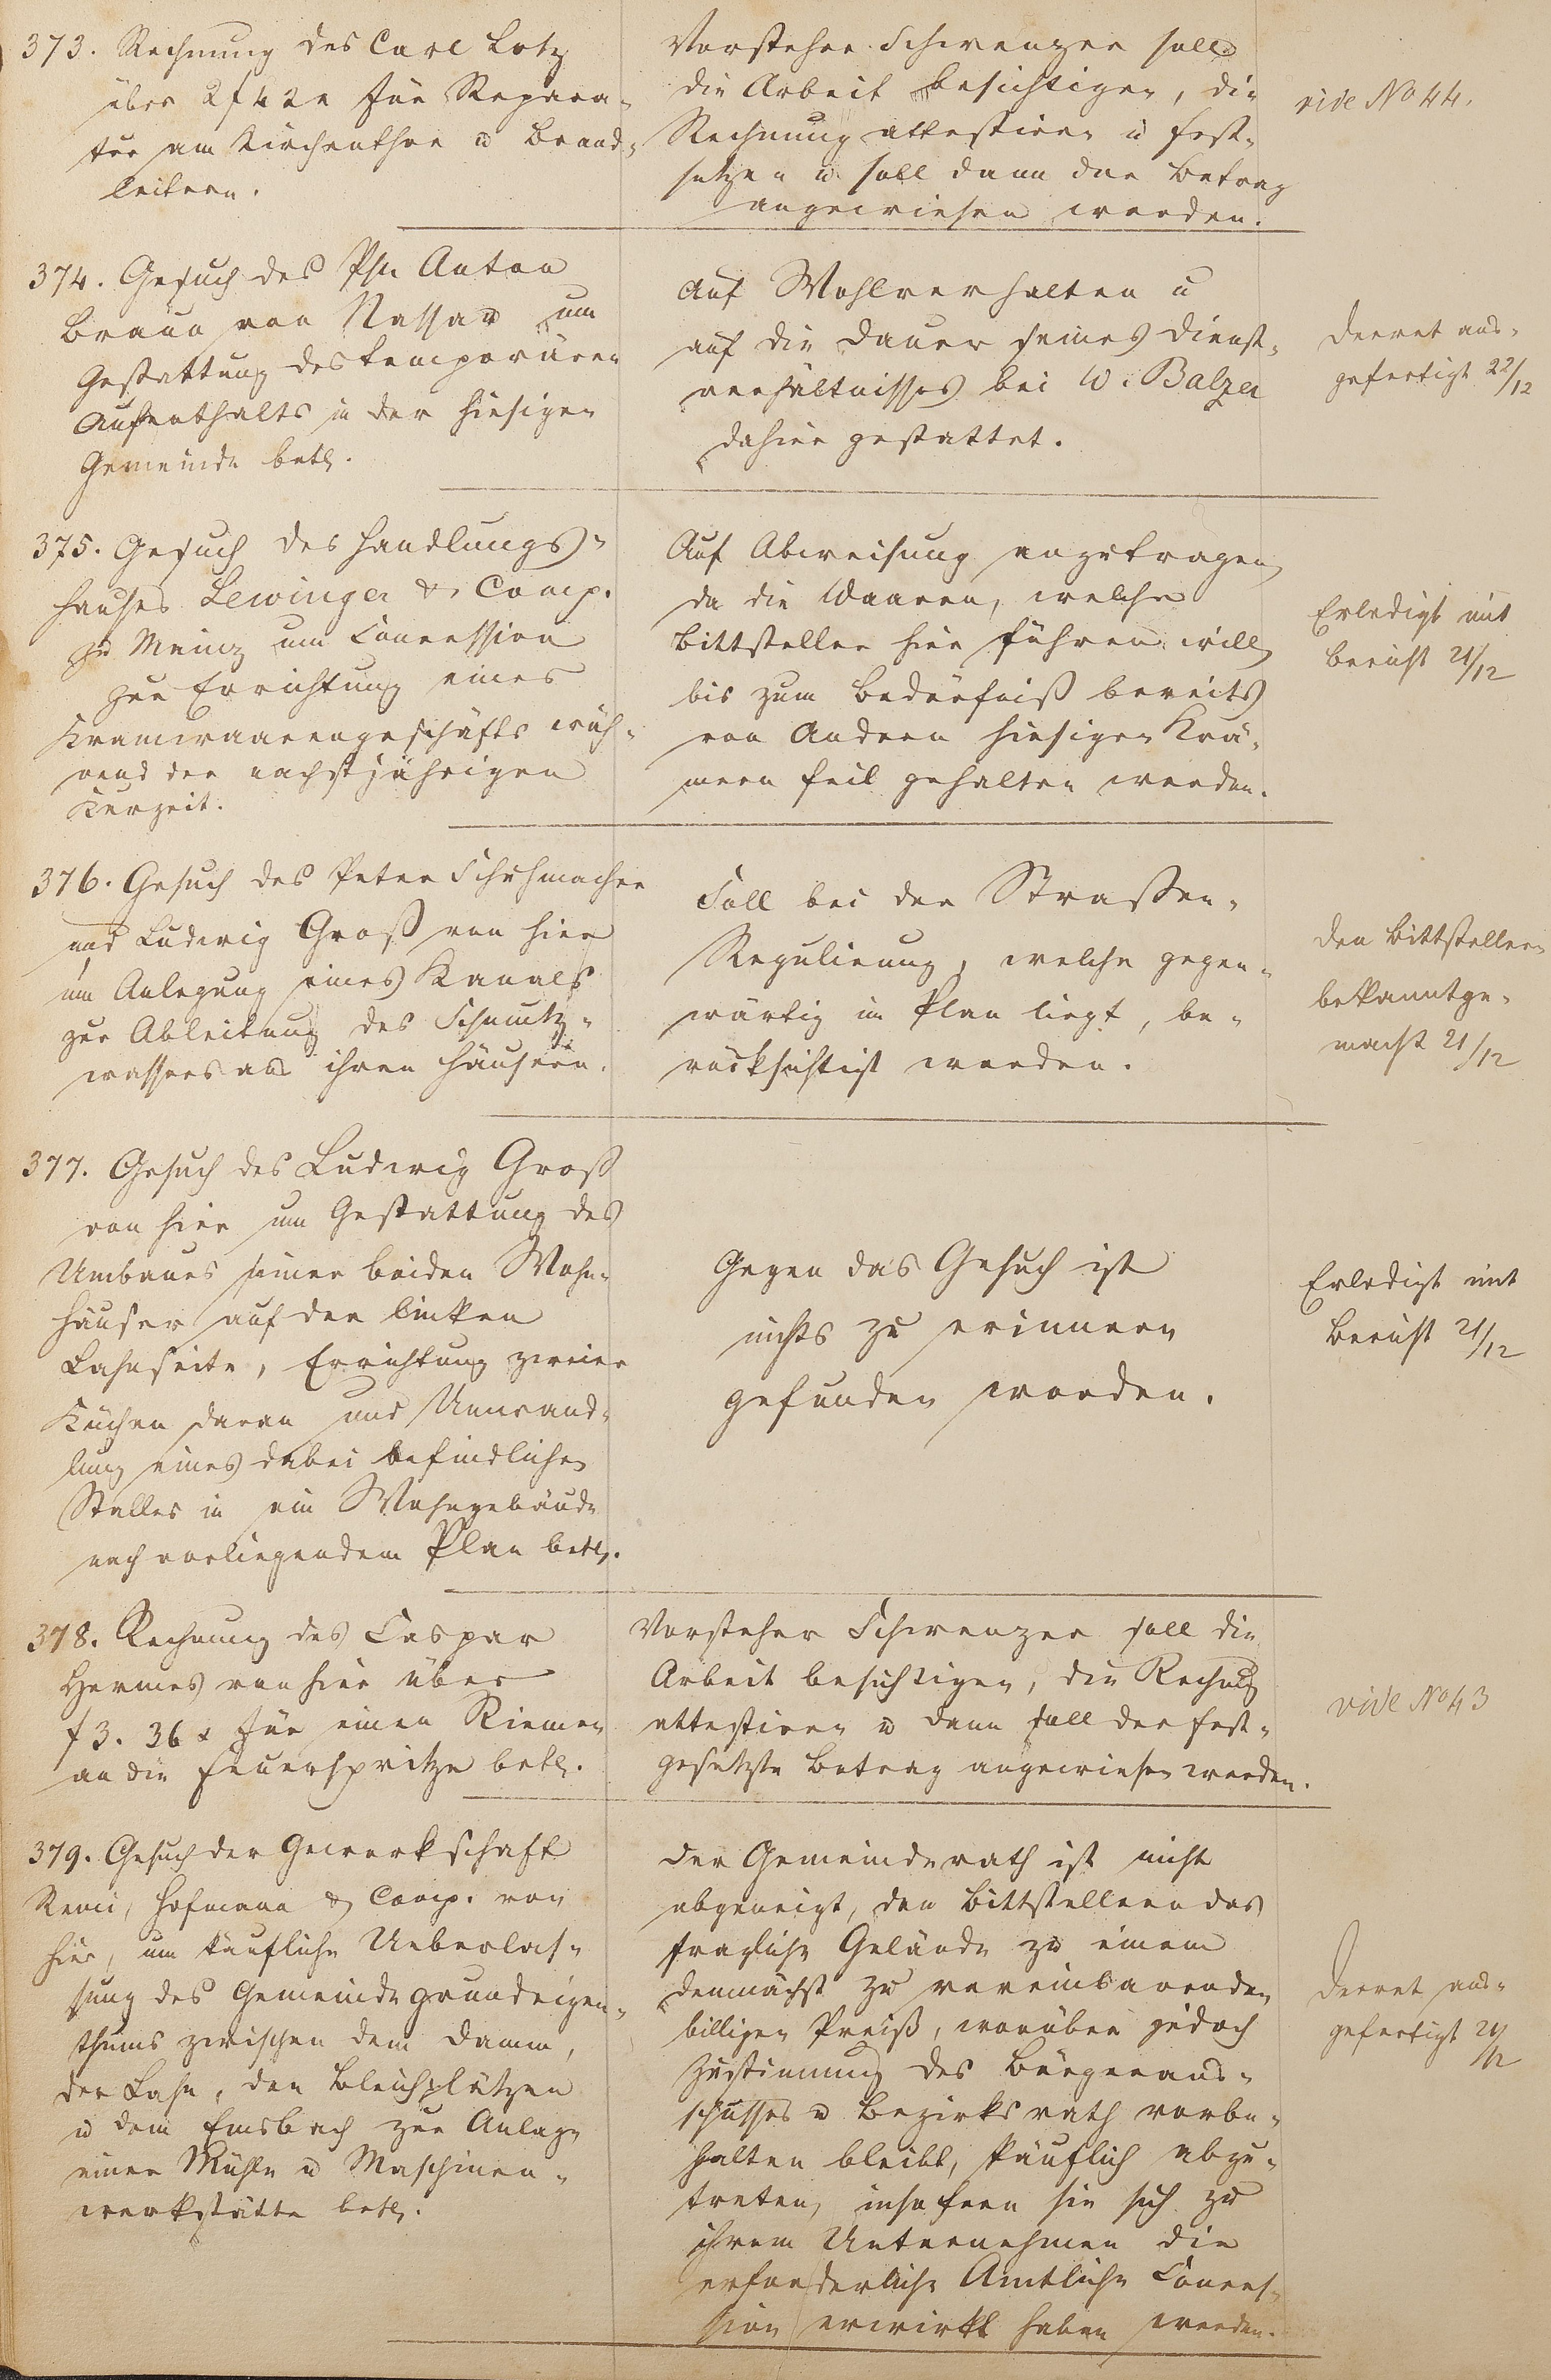 373. Rechnung des Carl Lotz
über 2 f 42 x für Repara-
tur am Kirchenthor u Brand-
leitern.
Vorsteher Schwenzer soll
die Arbeit besichtigen, die
Rechnung attestiren u fest-
setzen u. soll dann der Betrag
angewiesen werden.
vide No 44.
374. Gesuch des Ph. Anton
Braun von Nassau um
Gestattung des temporären
Aufenthalts in der hiesigen
Gemeinde betr.
Auf Wohlverhalten u
auf die Dauer seines Dienst-
verhältnisses bei W. Balzer
dahier gestattet.
Decret aus-
gefertigt 22/12
375. Gesuch des Handlungs-
hauses Lewinger & Comp.
zu Mainz um Concession
zur Errichtung eines
Kramwaarengeschäfts wäh-
rend der nachstjährigen
Kurzeit.
Auf Abweisung anzutragen,
da die Waaren, welche
Bittsteller hier führen will,
bis zum Bedürfniß bereits
von Andern hiesigen Krä-
mern feil gehalten werden.
Erledigt mit
Bericht 21/12
376. Gesuch des Peter Schuhmacher
und Ludwig Groß von hier
um Anlegung eines Kanals
zur Ableitung des Schmutz-
wassers aus ihren Häusern.
Soll bei der Straßen-
Regulierung, welche gegen-
wärtig im Plan liegt, be-
rücksichtigt werden.
Den Bittstellern
bekanntge-
macht 21/12
377. Gesuch des Ludwig Groß
von hier um Gestattung des
Umbaues seiner beiden Wohn-
häuser auf der linken
Lahnseite, Errichtung zweier
Küchen daran und Umwand-
lung eines dabei befindlichen
Stalles in ein Wohngebäude
nach vorliegendem Plan betr.
Gegen das Gesuch ist
nichts zu erinnern
gefunden worden.
Erledigt mit
Bericht 21/12
378. Rechnung des Caspar
Hermes von hier über
f 3. 36 x für einen Riemen
an die Feuerspritze betr.
Vorsteher Schwenzer soll die
Arbeit besichtigen, die Rechnung
attestiren u dann soll der fest-
gesetzte Betrag angewiesen werden.
vide No 43
379. Gesuch der Gewerkschaft
Remi, Hofmann & Comp. von
hier, um käufliche Ueberlas-
sung des Gemeindegrundeigen-
thums zwischen dem Damm,
der Lahn, den Bleichplätzen
u dem Emsbach zur Anlage
einer Mühle u Maschinen-
werkstätte betr.
Der Gemeinderath ist nicht
abgeneigt, den Bittstellern das
fragliche Gelände zu einem
demnächst zu vereinbarenden
billigen Preiß, worüber jedoch
Zustimmung des Bürgeraus-
schusses u Bezirksrath vorbe-
halten bleibt, käuflich abzu-
treten, insofern sie sich zu
ihrem Unternehmen die
erforderliche Amtliche Conces-
sion erwirkt haben werden.
Decret aus-
gefertigt 21/12